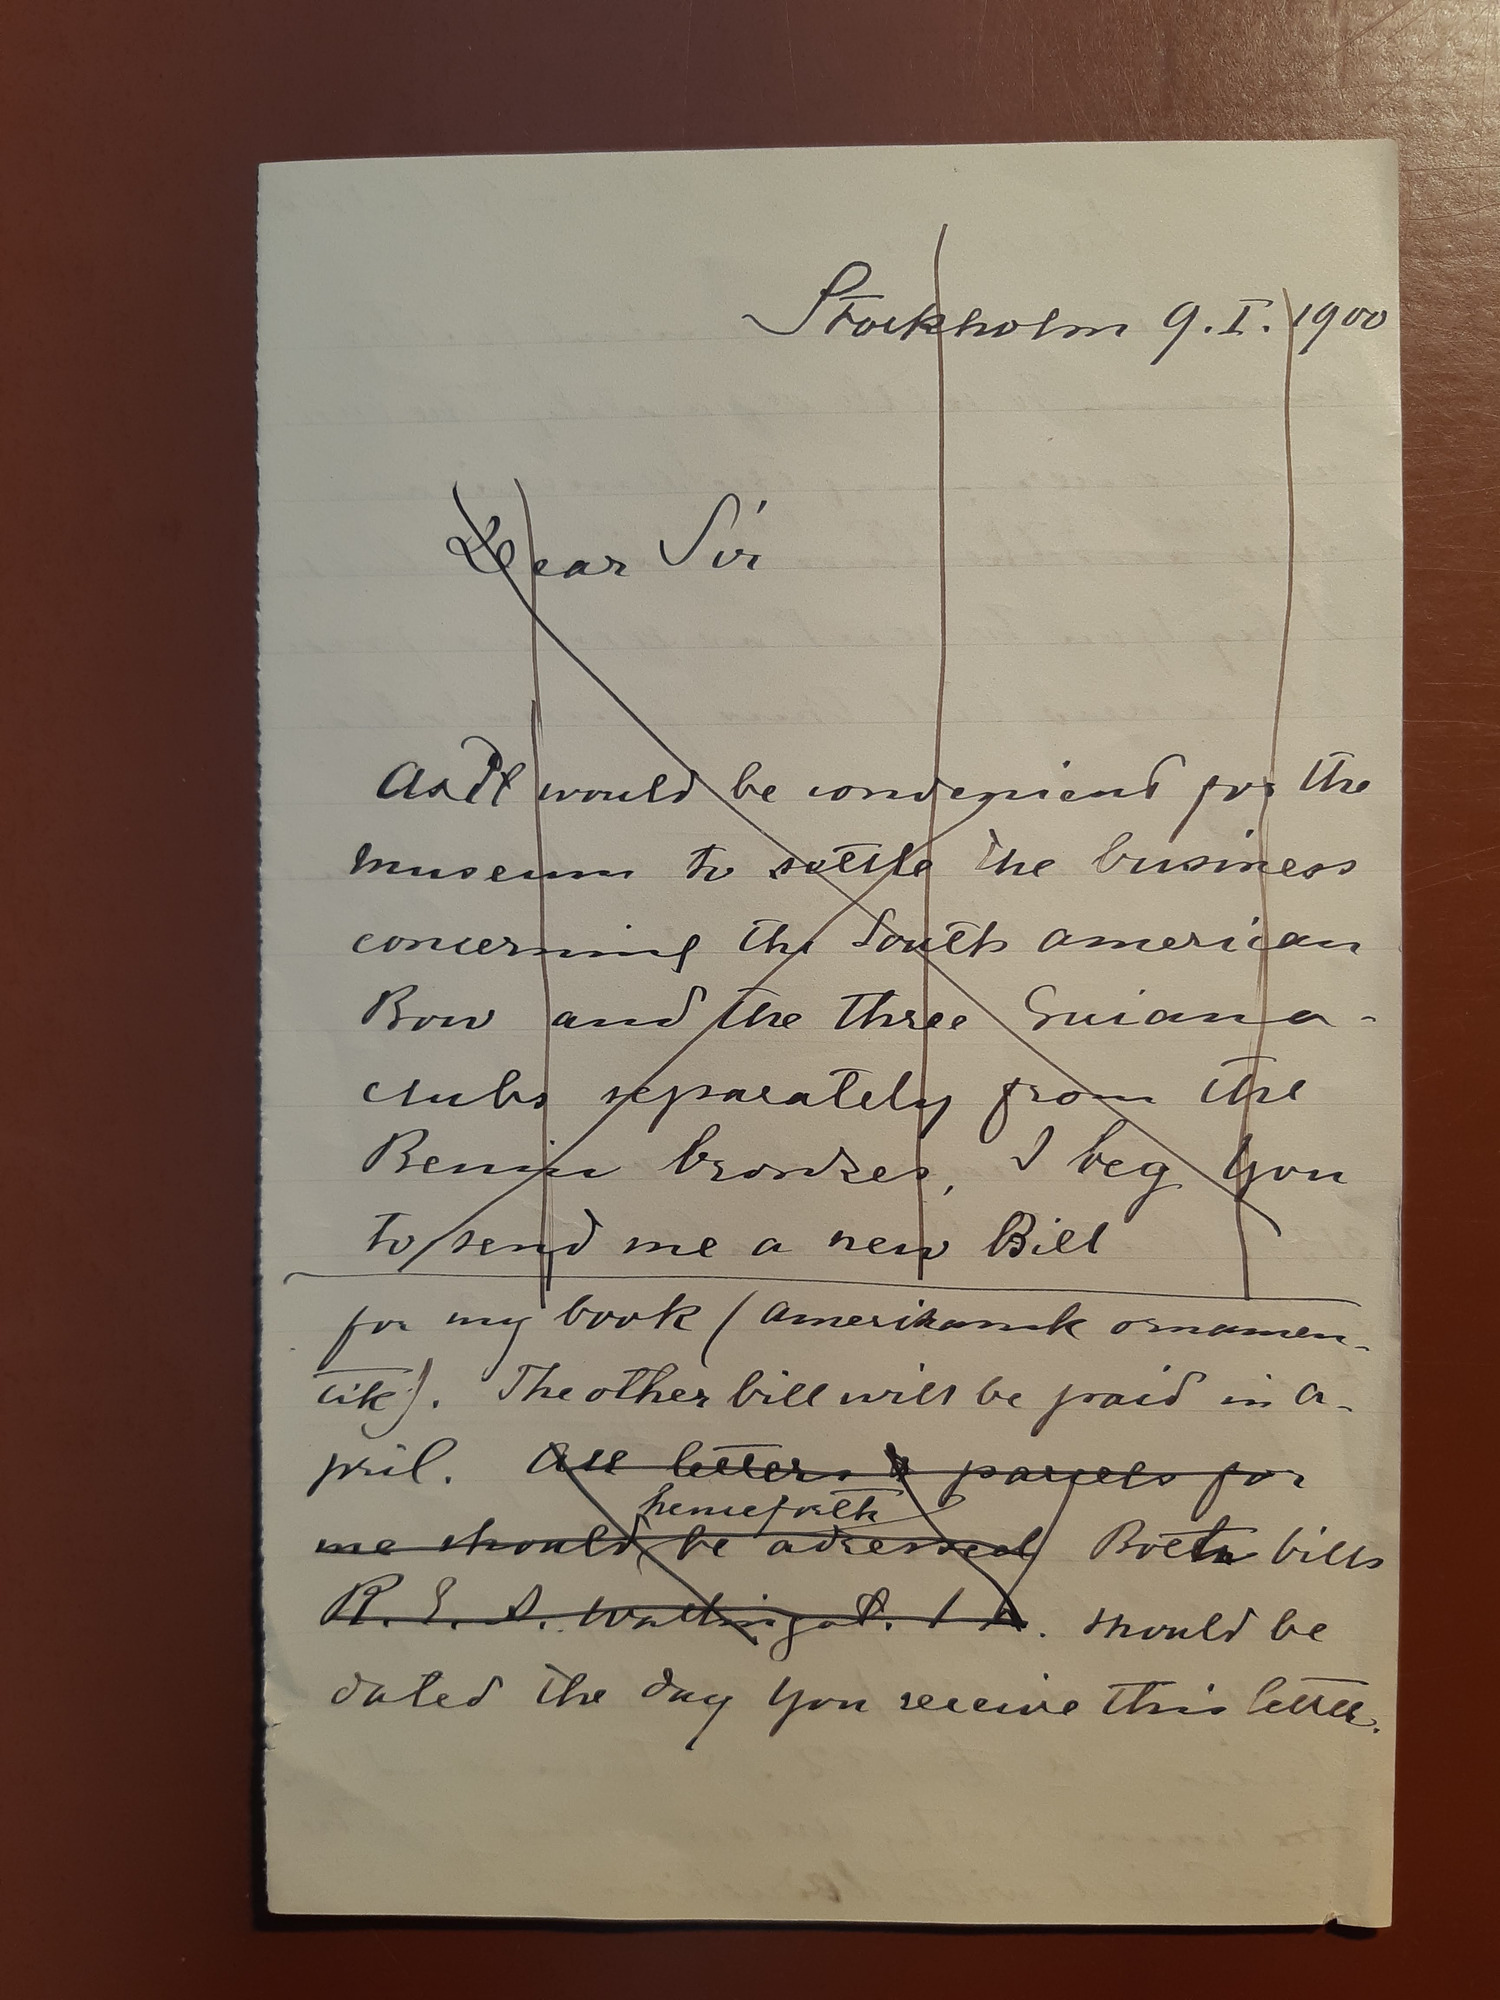 Stockholm 9.I.1900
Dear Sir
As it would be convenient for the
museum to settle the business
concerning the South american
Bow and the three Guiana-
clubs separately from the
Benin bronzes, I beg you
to send me a new Bill
for my book (Amerikansk ornamen-
tik). The other bill will be paid in A-
pril. All letters & parcels for
henceforth
me should be adressed Both bills
R. E. A. Wallingat. 1 A. should be
dated the day you receive this letter.